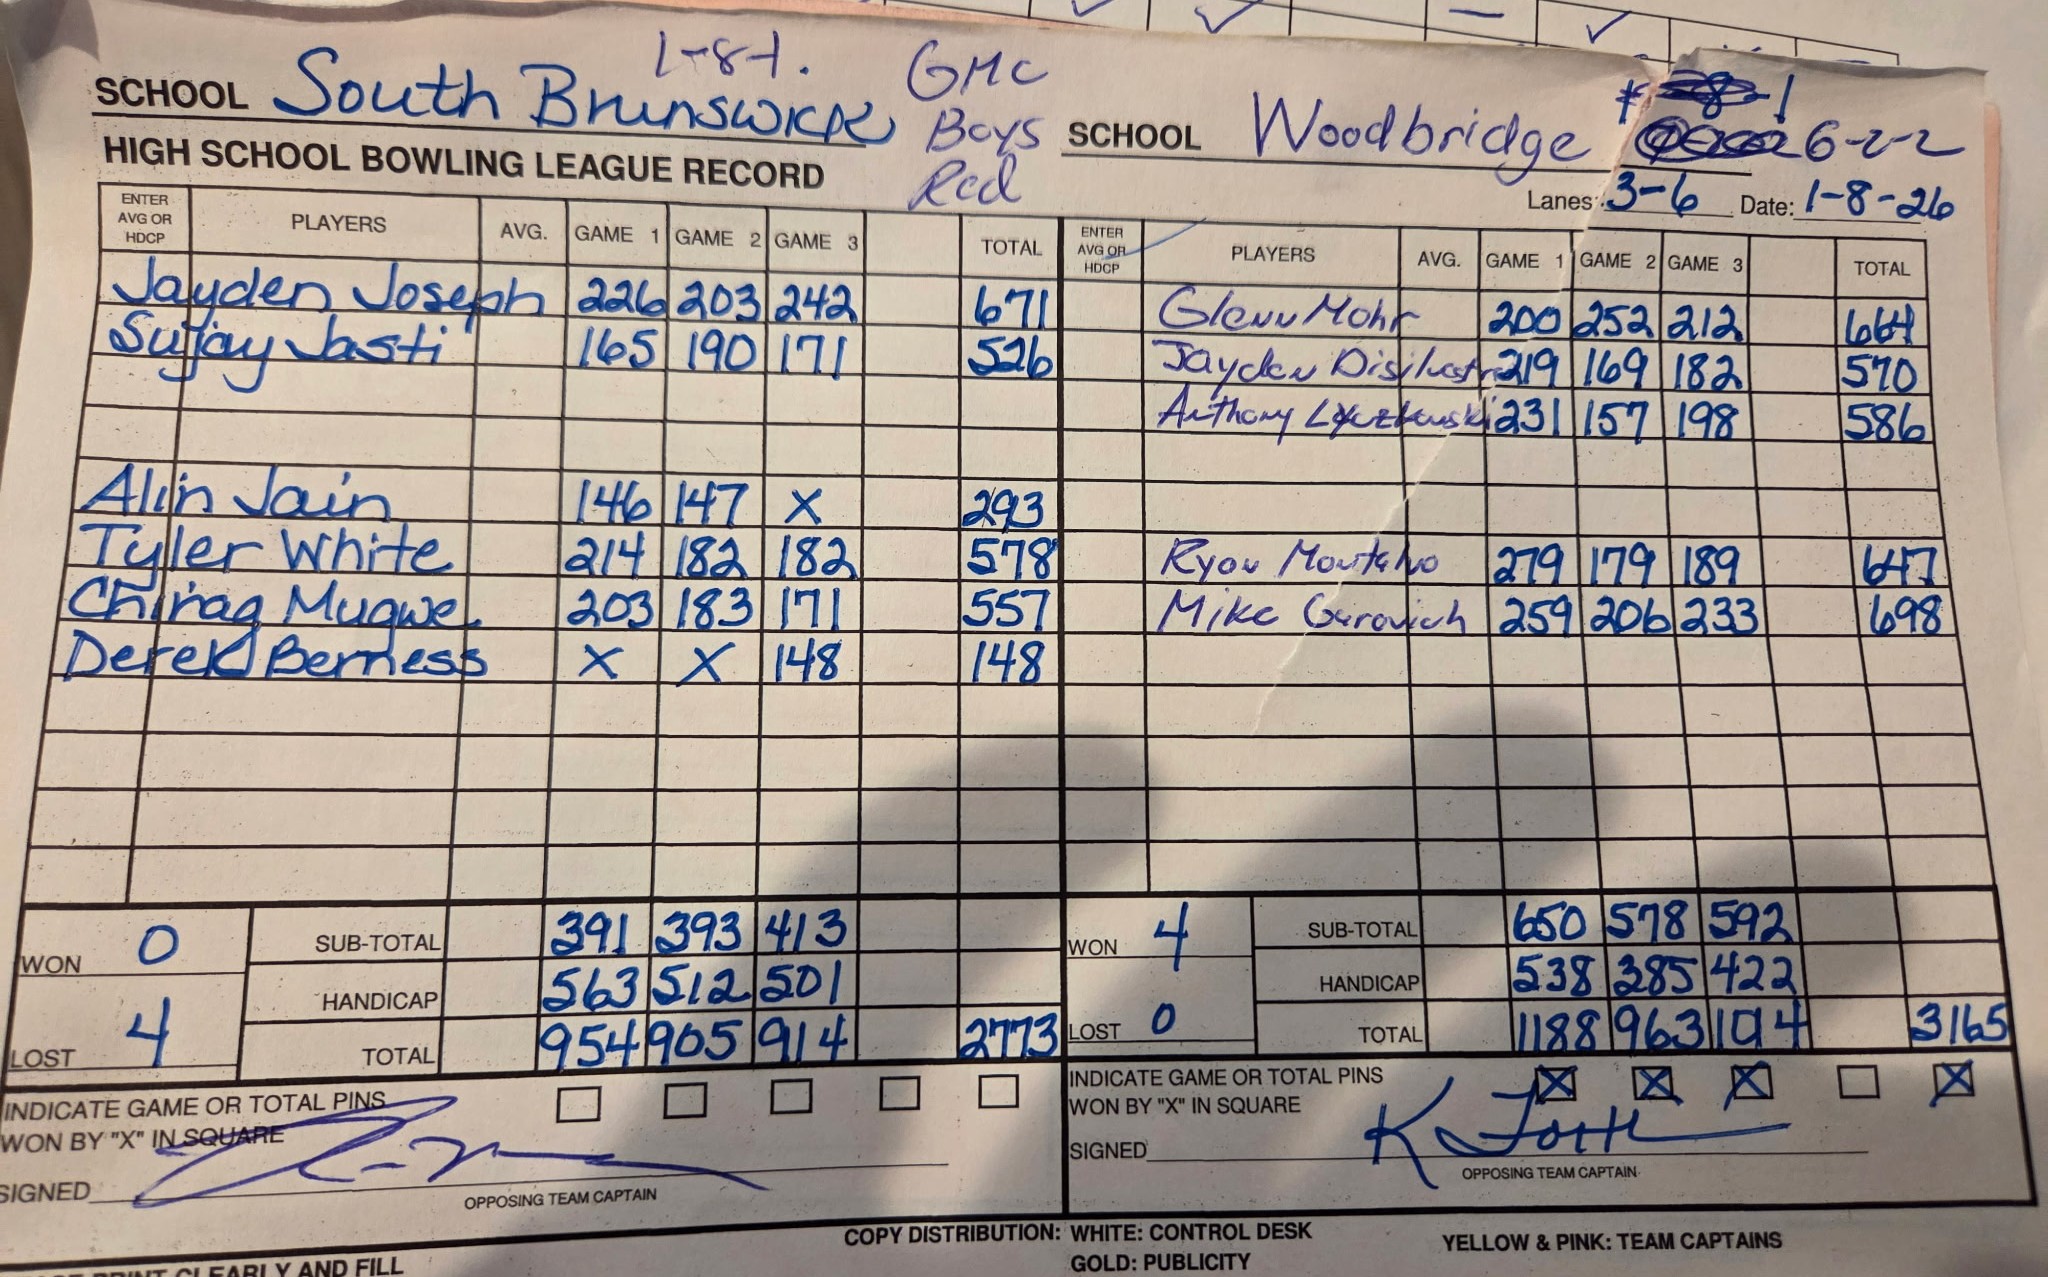 1-8-1.
SCHOOL South Brunswick
GMC
Boys
Red
HIGH SCHOOL BOWLING LEAGUE RECORD
SCHOOL Woodbridge
6-2-2
Lanes: 3-6 Date: 1-8-26
ENTER AVG OR HDCP PLAYERS AVG. GAME 1 GAME 2 GAME 3 TOTAL
Jayden Joseph 226 203 242 671
Sujay Jasti 165 190 171 526
Alin Jain 146 147 X 293
Tyler White 214 182 182 578
Chirag Mugwe 203 183 171 557
Derek Berness X X 148 148
WON 0
LOST 4
SUB-TOTAL 391 393 413
HANDICAP 563 512 501
TOTAL 954 905 914 2773
INDICATE GAME OR TOTAL PINS
WON BY "X" IN SQUARE
SIGNED
OPPOSING TEAM CAPTAIN
ENTER AVG OR HDCP PLAYERS AVG. GAME 1 GAME 2 GAME 3 TOTAL
Glenn Mohr 200 252 212 664
Jayden 219 169 182 570
Anthony 231 157 198 586
Ryan 279 179 189 647
Mike 259 206 233 698
WON 4
LOST 0
SUB-TOTAL 650 578 592
HANDICAP 538 385 422
TOTAL 1188 963 1014 3165
INDICATE GAME OR TOTAL PINS
WON BY "X" IN SQUARE
X X X X
SIGNED
OPPOSING TEAM CAPTAIN
COPY DISTRIBUTION: WHITE: CONTROL DESK
GOLD: PUBLICITY
YELLOW & PINK: TEAM CAPTAINS
PRINT CLEARLY AND FILL